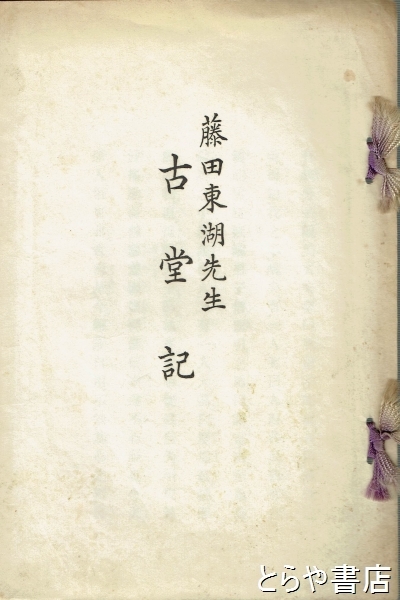 藤田東湖先生
古堂記
とらや書店